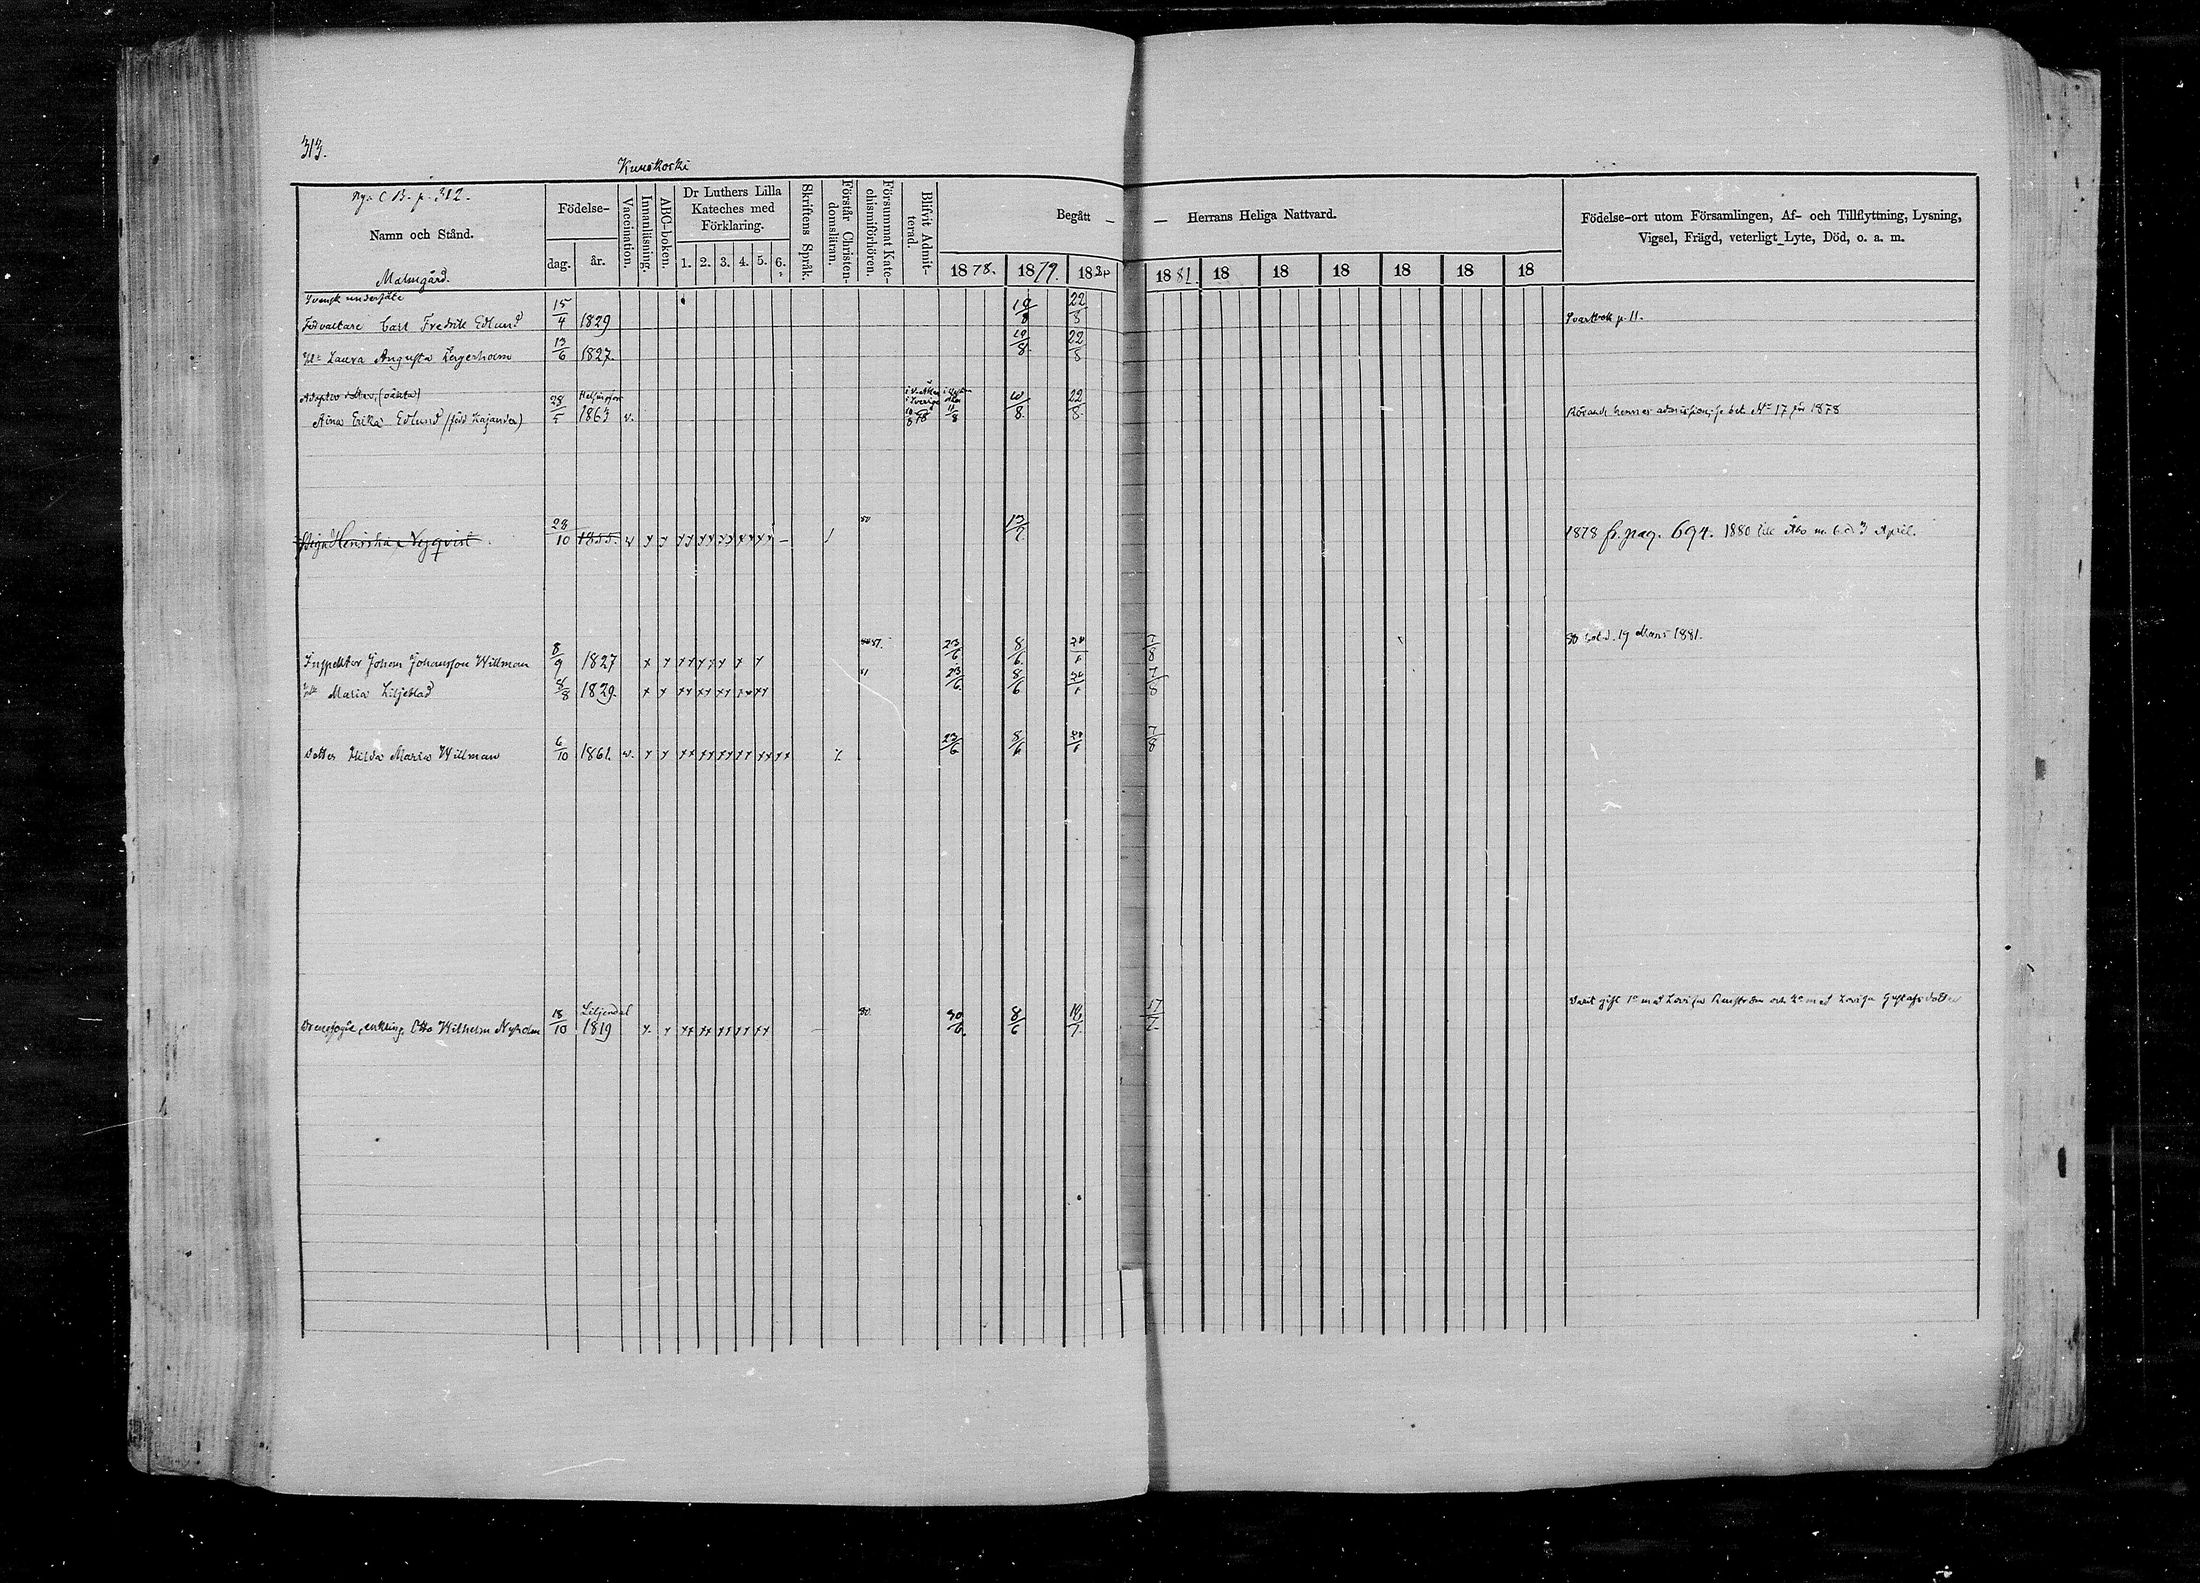 313.
Kuuskoski
Nya C B. p. 312.
Namn och Stånd.
Malmgård.
Födelse-
dag. år.
Vaccination.
Innanläsning.
ABC-boken.
Dr Luthers Lilla
Kateches med
Förklaring.
1. 2. 3. 4. 5. 6.
Skriftens Språk.
Förstår Christen-
domsläran.
Försummat Kate-
chismiförhören.
Blifvit Admit-
terad.
Begått — — Herrans Heliga Nattvard.
1878. 1879. 1880 1881. 18 18 18 18 18 18
Födelse-ort utom Församlingen, Af- och Tillflyttning, Lysning,
Vigsel, Frägd, veterligt Lyte, Död, o. a. m.
Svensk undersåte
Förvaltare Carl Fredrik Edlund 15/4 1829 10/8 22/8 Svartbok p. 11.
Laura Augusta Lagerholm 13/6 1827. 10/8. 22/8
Adoptiv
Aina Erika Edlund (född Kajander) 28/5 Helsingfors 1863 v. 11/8 10/8. 22/8. Rörande hennes admission, se bet. No 17 för 1878
Nyqvist 28/10 1855. v 80 13/7. 1878 fr. pag. 694. 1880 till Åbo m. b. d. 3 April.
Inspektor Johan Johansson Willman 8/9 1827 23/6 8/6. 7/8 d. 19 Mars 1881.
Maria Liljeblad 8/8 1829. 81 23/6. 8/6 7/8
dotter Hilda Maria Willman 6/10 1861. v. 23/6 8/6 7/8
Drengfogde, enkling Otto Wilhelm Nyholm 18/10 Liljendal 1819 80. 30/6. 8/6 16/7. 17/7. Varit gift 1o med Lovisa Renström och 2o med Lovisa Gustafsdotter